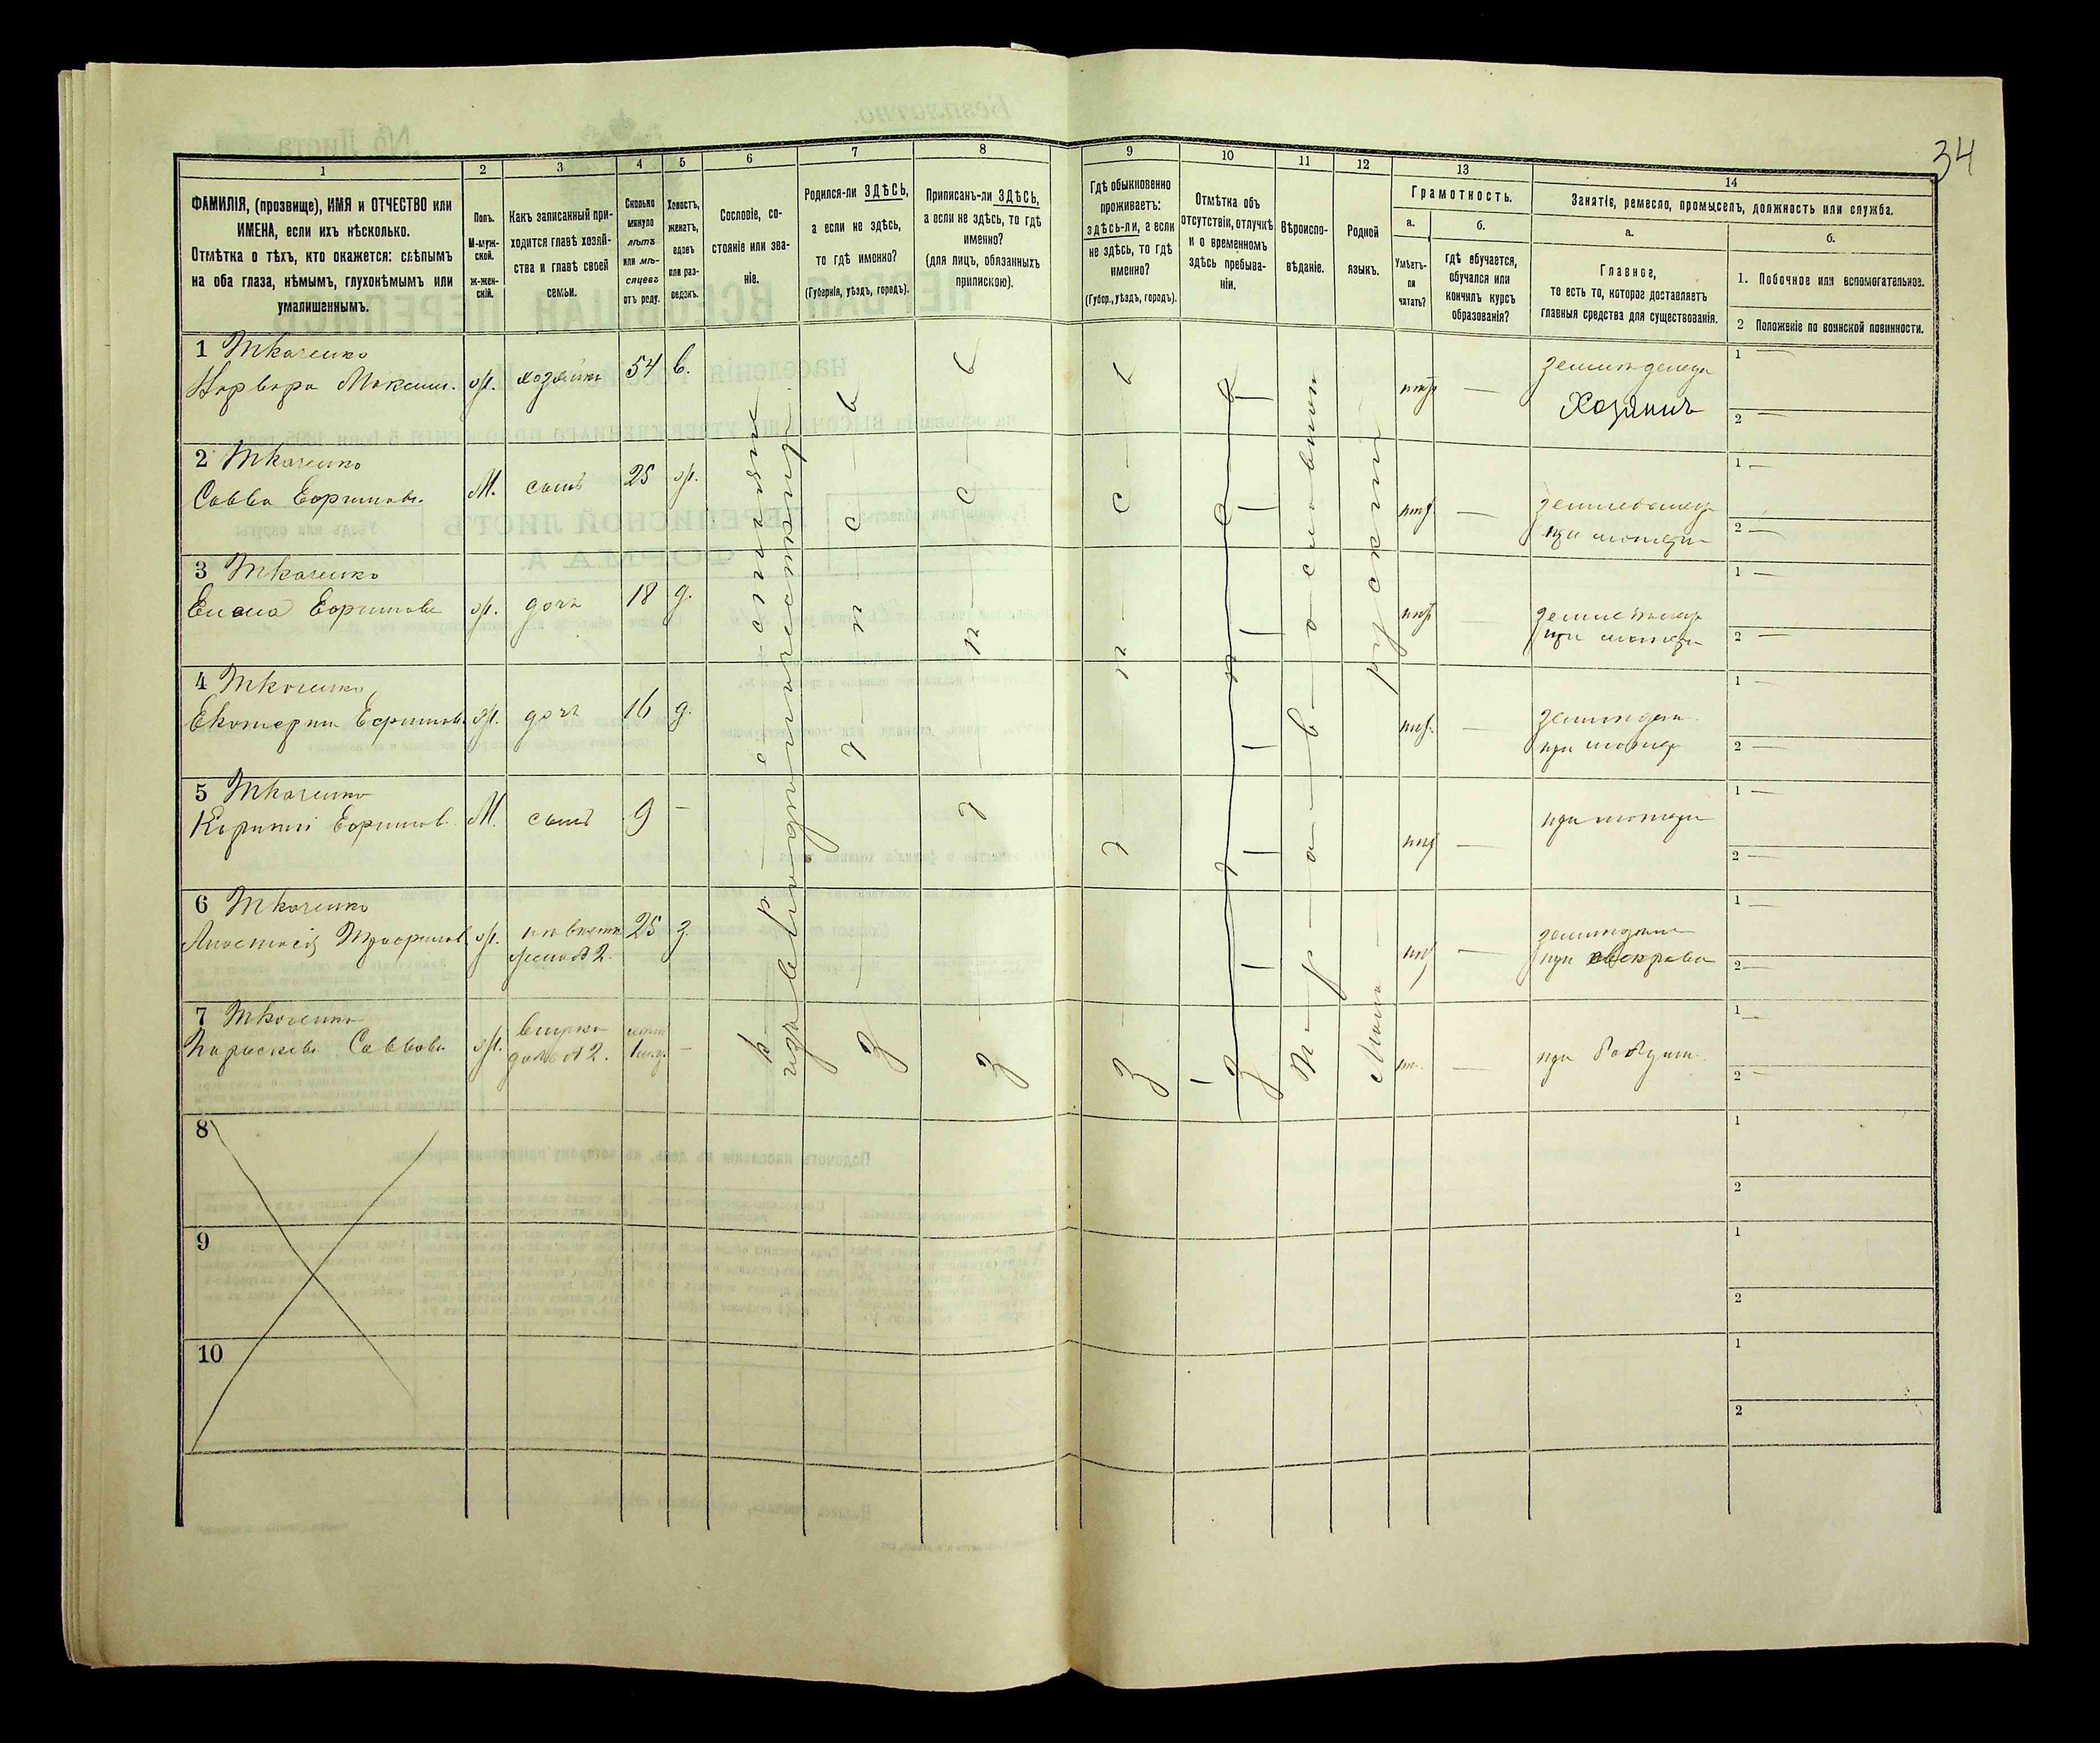 34
1 2 3 4 5 6 7 8 9 10 11 12 13 14
ФАМИЛІЯ, (прозвище), ИМЯ и ОТЧЕСТВО или
ИМЕНА, если ихъ нѣсколько.
Отмѣтка о тѣхъ, кто окажется: слѣпымъ
на оба глаза, нѣмымъ, глухонѣмымъ или
умалишеннымъ.
Полъ.
М-муж-
ской.
ж-жен-
скій.
Какъ записанный при-
ходится главѣ хозяй-
ства и главѣ своей
семьи.
Сколько
минуло
лѣтъ
или мѣ-
сяцевъ
отъ роду.
Холостъ,
женатъ,
вдовъ
или раз-
веденъ.
Сословіе, со-
стояніе или зва-
ніе.
Родился-ли ЗДѢСЬ,
а если не здѣсь,
то гдѣ именно?
(Губернія, уѣздъ, городъ).
Приписанъ-ли ЗДѢСЬ,
а если не здѣсь, то гдѣ
именно?
(для лицъ, обязанныхъ
припискою).
Гдѣ обыкновенно
проживаетъ:
здѣсь-ли, а если
не здѣсь, то гдѣ
именно?
(Губер., уѣздъ, городъ).
Отмѣтка объ
отсутствіи, отлучкѣ
и о временномъ
здѣсь пребыва-
ніи.
Вѣроиспо-
вѣданіе.
Родной
языкъ.
Грамотность.
а.
Умѣетъ-
ли
читать?
б.
гдѣ обучается,
обучался или
кончилъ курсъ
образованія?
Занятіе, ремесло, промыселъ, должность или служба.
а.
Главное,
то есть то, которое доставляетъ
главныя средства для существованія.
б.
1. Побочное или вспомогательное.
2 Положеніе по воинской повинности.
1 Ткаченко
Варвара Максим. ж. хозяйка 54 в. нѣтъ —
Хозяинъ
1 —
2 —
2 Ткаченко
Савва Ефримов. М. сынъ 25 ж. нѣтъ —
при матери
1 —
2 —
3 Ткаченко
Ефримова ж. дочь 18 д. нѣтъ —
при матери
1 —
2 —
4 Ткаченко
Екатерина Ефримова ж. дочь 16 д. нѣтъ —
при матери
1 —
2 —
5 Ткаченко
Ефримов М. сынъ 9 — нѣтъ —
при матери
1 —
2 —
6 Ткаченко
Анастасія ж. невѣстка 25 з. нѣтъ —
жена №2.
при свекрови
1 —
2 —
7 Ткаченко
Параскева Саввова ж. внучка —
дочь №2.
при родит.
1 —
2 —
здесь
здесь
здесь
здесь
православной
Мало-
русскій
8
1
2
9
1
2
10
1
2